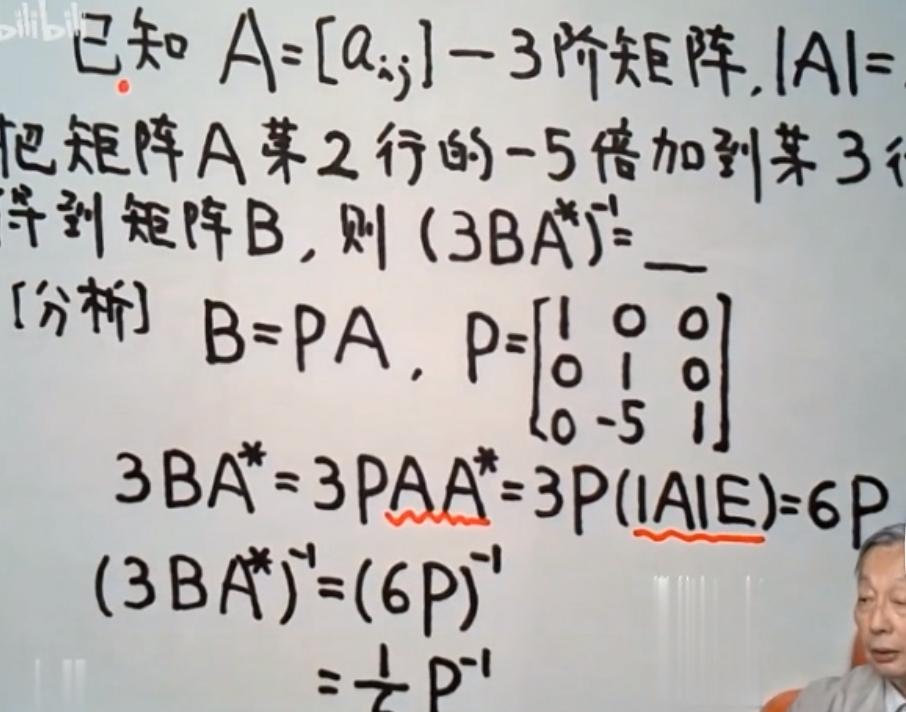 bilibili
已知 A=[aᵢⱼ]一3阶矩阵,|A|=
把矩阵A第2行的-5倍加到第3行
得到矩阵B,则 (3BA*)⁻¹=__
[分析] B=PA, P=[1 0 0
0 1 0
0 -5 1]
3BA*=3PAA*=3P(|A|E)=6P
(3BA*)⁻¹=(6P)⁻¹
=1/6 P⁻¹